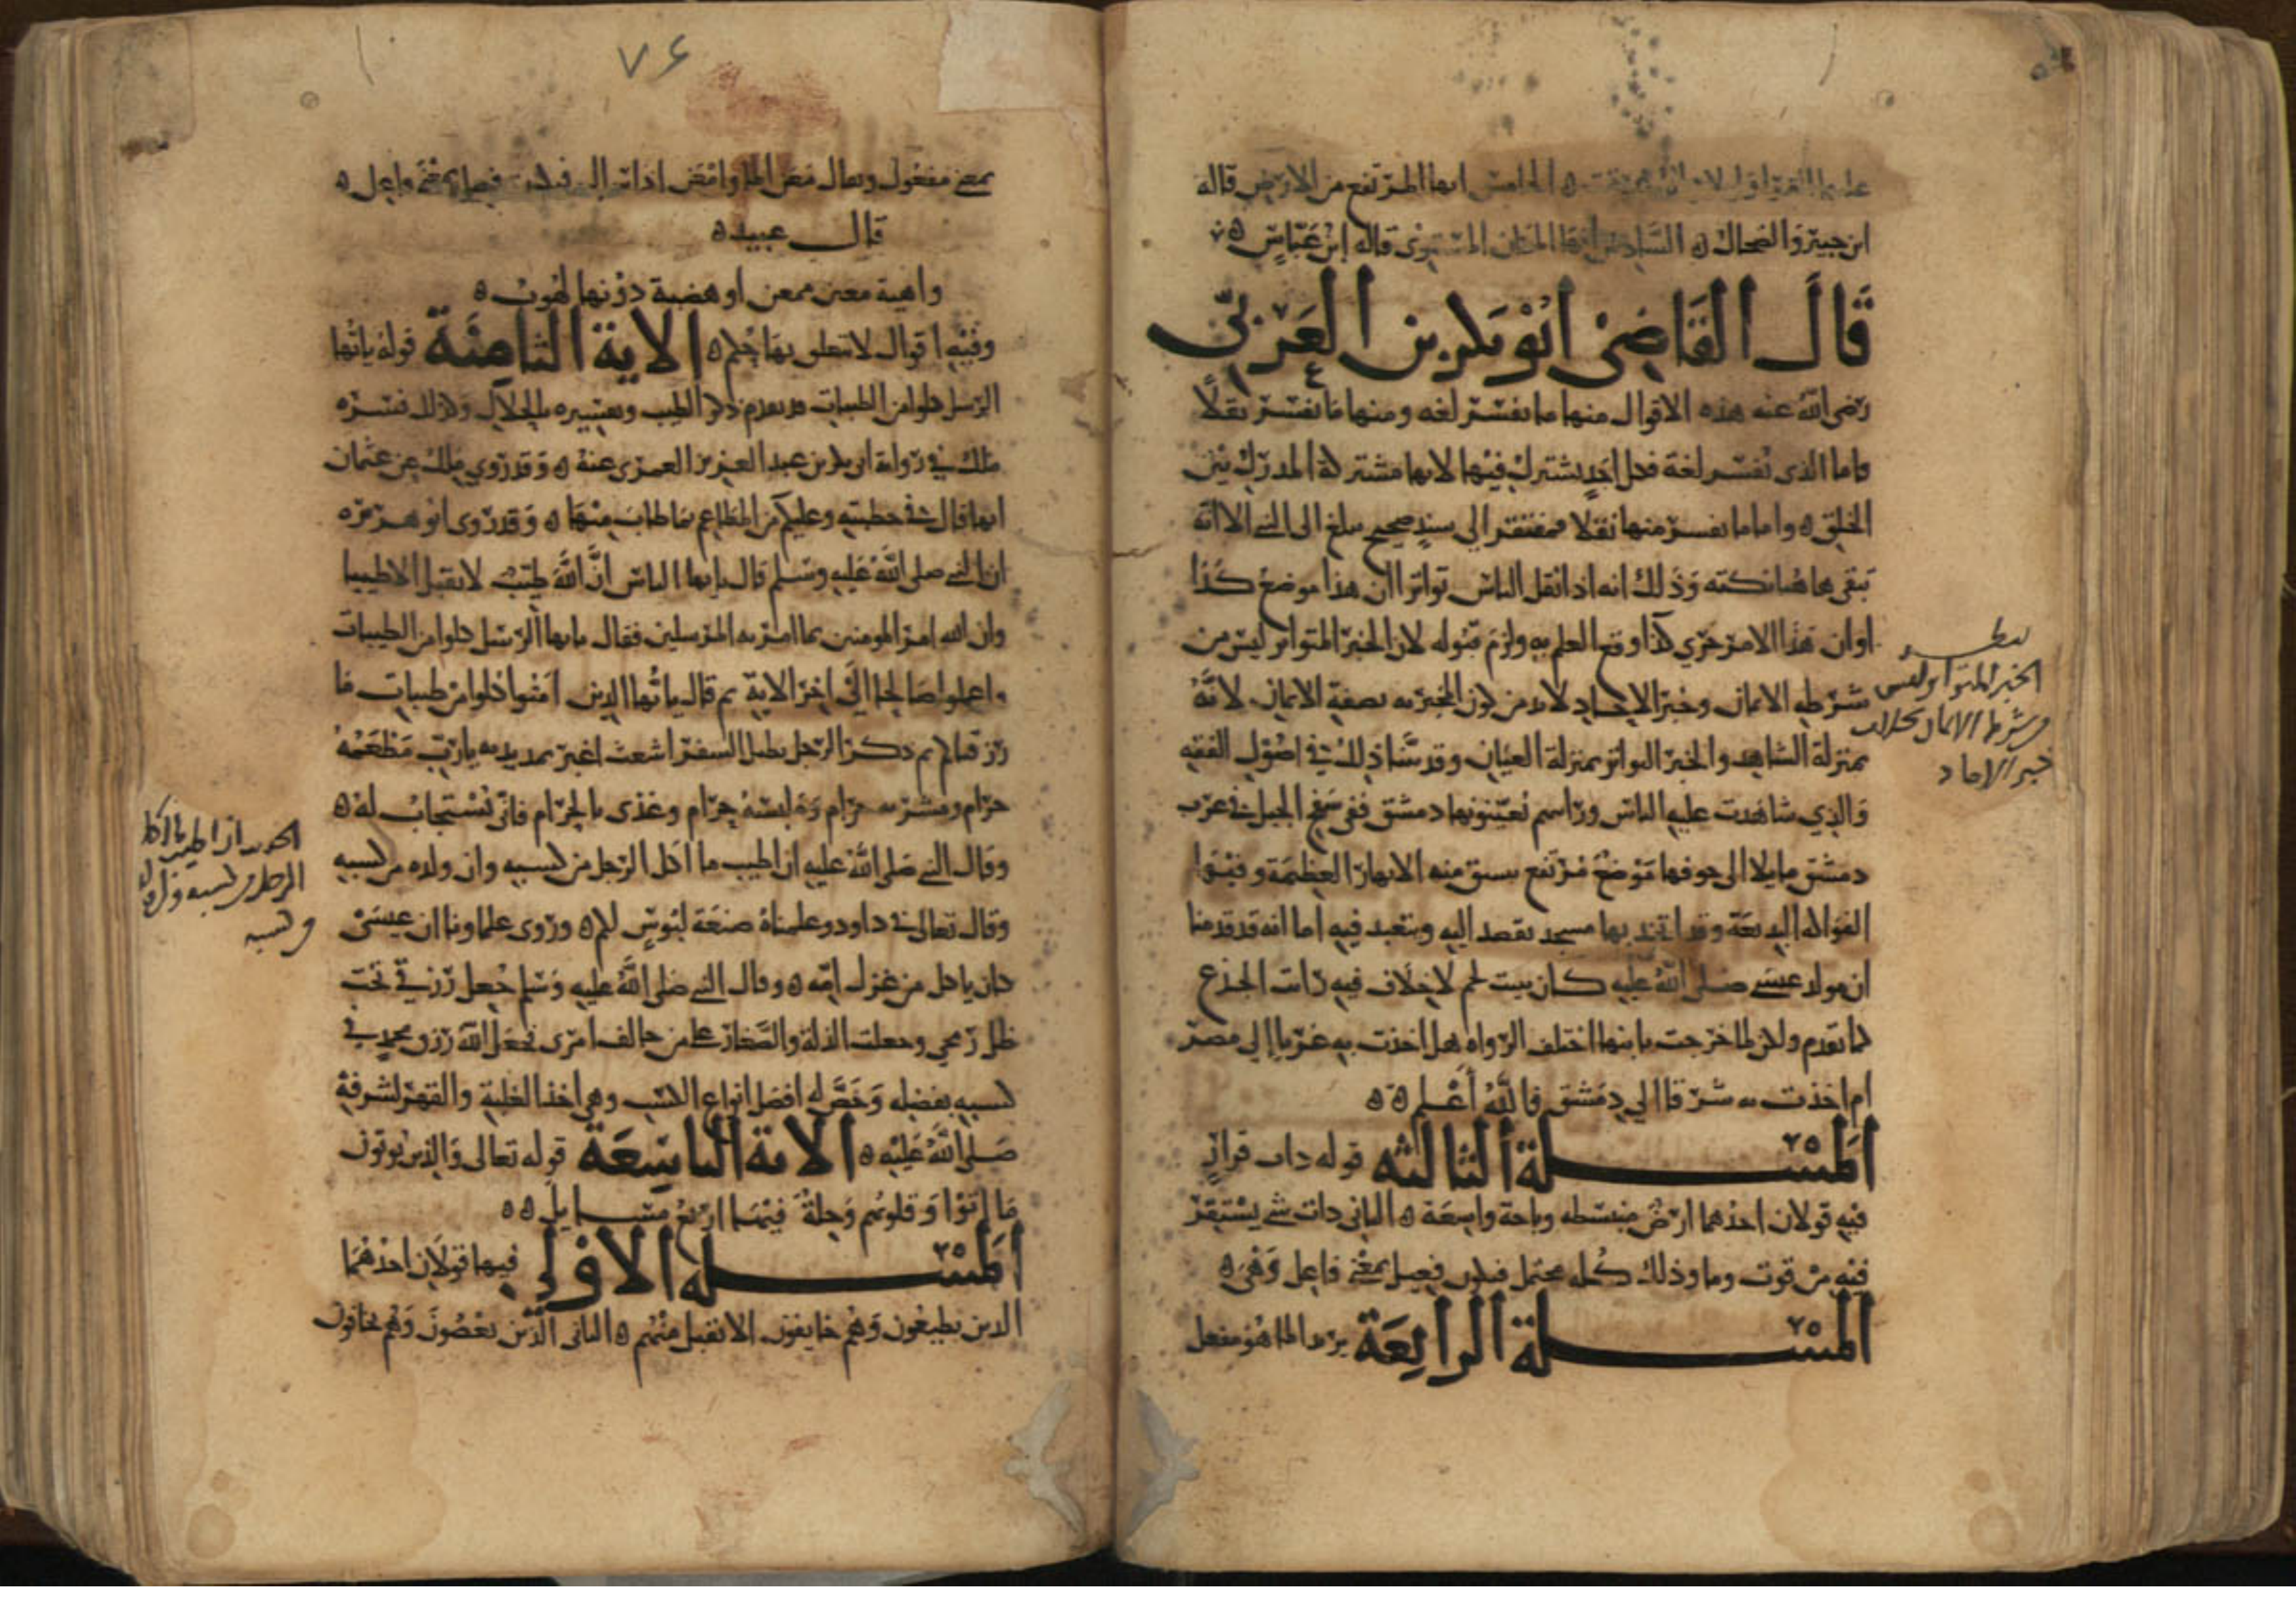 ابن جبير والضحاك ه السادس انها المكان المستوى قاله ابن عباس ه
قال القاضي ابو بكر بن العربي
رضي الله عنه هذه الاقوال منها ما تفسر لغة ومنها ما تفسر نقلا
فاما الذي تفسر لغة فكل احد يشترك فيها لانها مشتركة المدرك بين
الخلق ه واما ما تفسر منها نقلا فمفتقر الى سند صحيح يبلغ الى النبي الا انه
تبقى هاهنا نكتة وذلك انه اذا نقل الناس تواترا ان هذا موضع كذا
او ان هذا الامر جرى كذا وقع العلم به ولزم قبوله لان الخبر المتواتر ليس من
شرطه الايمان وخبر الاحاد لابد من كون المخبر به بصفة الايمان لانه
بمنزلة الشاهد والخبر المتواتر بمنزلة العيان وقد بينا ذلك في اصول الفقه
والذي شاهدت عليه الناس وراسهم تعيينونها دمشق ففي سفح الجبل في غرب
دمشق مايلا الى جوفها موضع مرتفع تسقى منه الانهار العظيمة وفيها
الفواكه البديعة وقد اتخذ بها مسجد يقصد اليه ويتعبد فيه اما انه قد قدمنا
ان مولد عيسى صلى الله عليه كان ببيت لحم لا خلاف فيه رات الجذع
كما تقدم ولكن لما خرجت بابنها اختلف الرواه هل اخذت به غربا الى مصر
ام اخذت به شرقا الى دمشق فالله اعلم ه ه
المسلة الثالثه قوله ذات قرار
فيه قولان احدهما ارض منبسطه وباحة واسعة ه الثاني ذات شي يستقر
فيه من قوت وما وذلك كله محتمل
المسلة الرابعة يريد الما هو مفعل
نظر
الخبر المتواتر ليس
من شرطه الايمان بخلاف
خبر الاحاد
٧٤
بمعنى مفعول ويقال معن الما وامعن اذا سال فيكون فعيل بمعنى فاعل ه
قال عبيد ه
واهية معين ممعن او هضبة دونها لهوب ه
وفيه اقوال لا تتعلق بها حكم ه الاية الثامنة قوله يايها
الرسل كلوا من الطيبات قد تقدم ذكر الطيب وتفسيره بالحلال وكذلك فسره
ملك في رواية ابي بكر بن عبد العزيز العمري عنه ه وقد روى ملك عن عثمان
انه قال في خطبته وعليكم من المطاعم بما طاب منها ه وقد روى ابو هريره
ان النبي صلى الله عليه وسلم قال يايها الناس ان الله طيب لا يقبل الا طيبا
وان الله امر المومنين بما امر به المرسلين فقال يايها الرسل كلوا من الطيبات
واعملوا صالحا الى اخر الاية ثم قال يايها الذين امنوا كلوا من طيبات ما
رزقناكم ثم ذكر الرجل يطيل السفر اشعث اغبر يمد يديه يارب مطعمه
حرام ومشربه حرام وملبسه حرام وغذى بالحرام فانى يستجاب له ه
وقال النبي صلى الله عليه ان اطيب ما اكل الرجل من كسبه وان ولده من كسبه
وقال تعالى في داود وعلمناه صنعة لبوس لكم ه وروى علماونا ان عيسى
كان ياكل من غزل امه ه وقال النبي صلى الله عليه وسلم جعل رزقي تحت
ظل رمحي وجعلت الذلة والصغار على من خالف امري فجعل الله رزق محمد في
كسبه بفضله وخص له افضل انواع الكسب وهي اخذ الغلبة والقهر لشرفه
صلى الله عليه ه الاية التاسعة قوله تعالى والذين يوتون
ما اتوا وقلوبهم وجلة فيها اربع مسايل ه ه
المسله الاولى فيها قولان احدهما
الذين يطيعون وهم خايفون الا تقبل منهم ه الثاني الذين يعصون وهم يخافون
ان اطيب ما اكل
الرجل من كسبه وان ولده
من كسبه